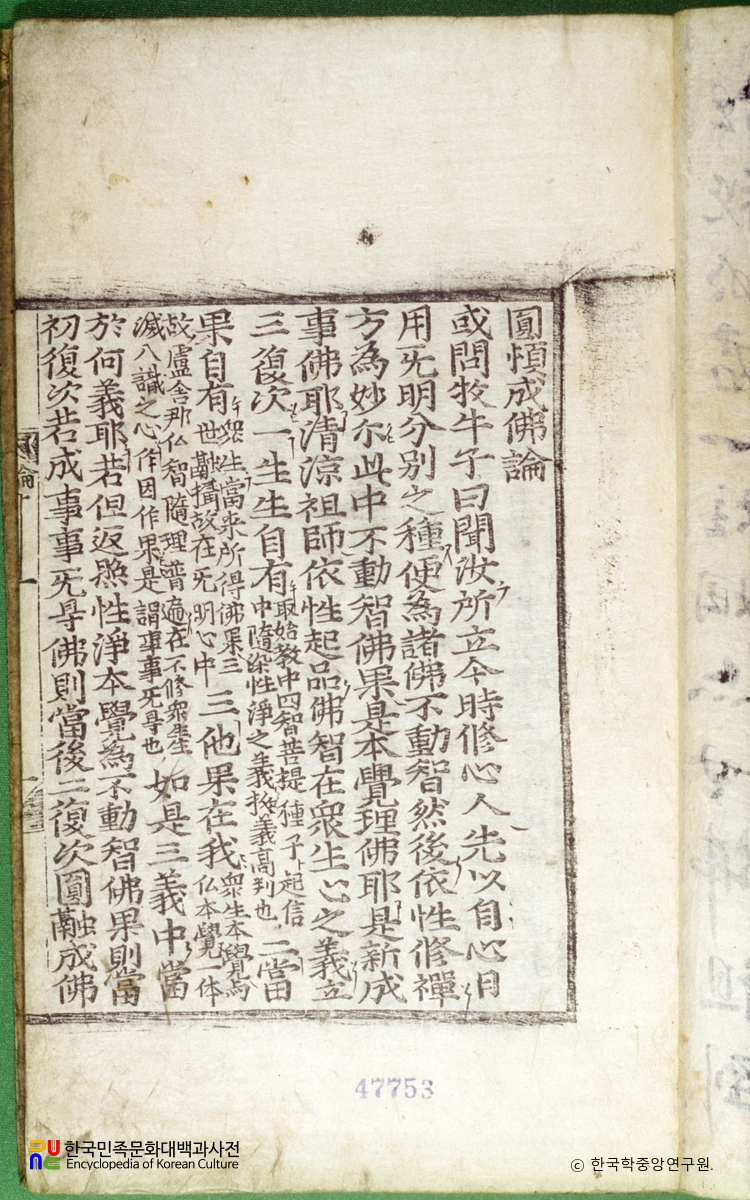 圓頓成佛論
或問牧牛子曰聞汝所立今時修心人先以自心日
用无明分別之種便為諸佛不動智然後依性修禪
方為妙尒此中不動智佛果是本覺理佛耶是新成
事佛耶清涼祖師依性起品佛智在衆生心之義立
三復次一生生自有取始教中四智菩提種子起信
中隨染性淨之義挍義高判也二當
果自有衆生當來所得佛果三
世融攝故在无明心中三他果在我衆生本覺与
仏本覺一体
故盧舍那仏智隨理普遍在不修衆生
滅八識之心作因作果是謂事事无㝵也如是三義中當
於何義耶若但返照性淨本覺為不動智佛果則當
初復次若成事事无㝵佛則當後二復次圓融成佛
圓論
一
47753
한국민족문화대백과사전
Encyclopedia of Korean Culture
ⓒ 한국학중앙연구원.